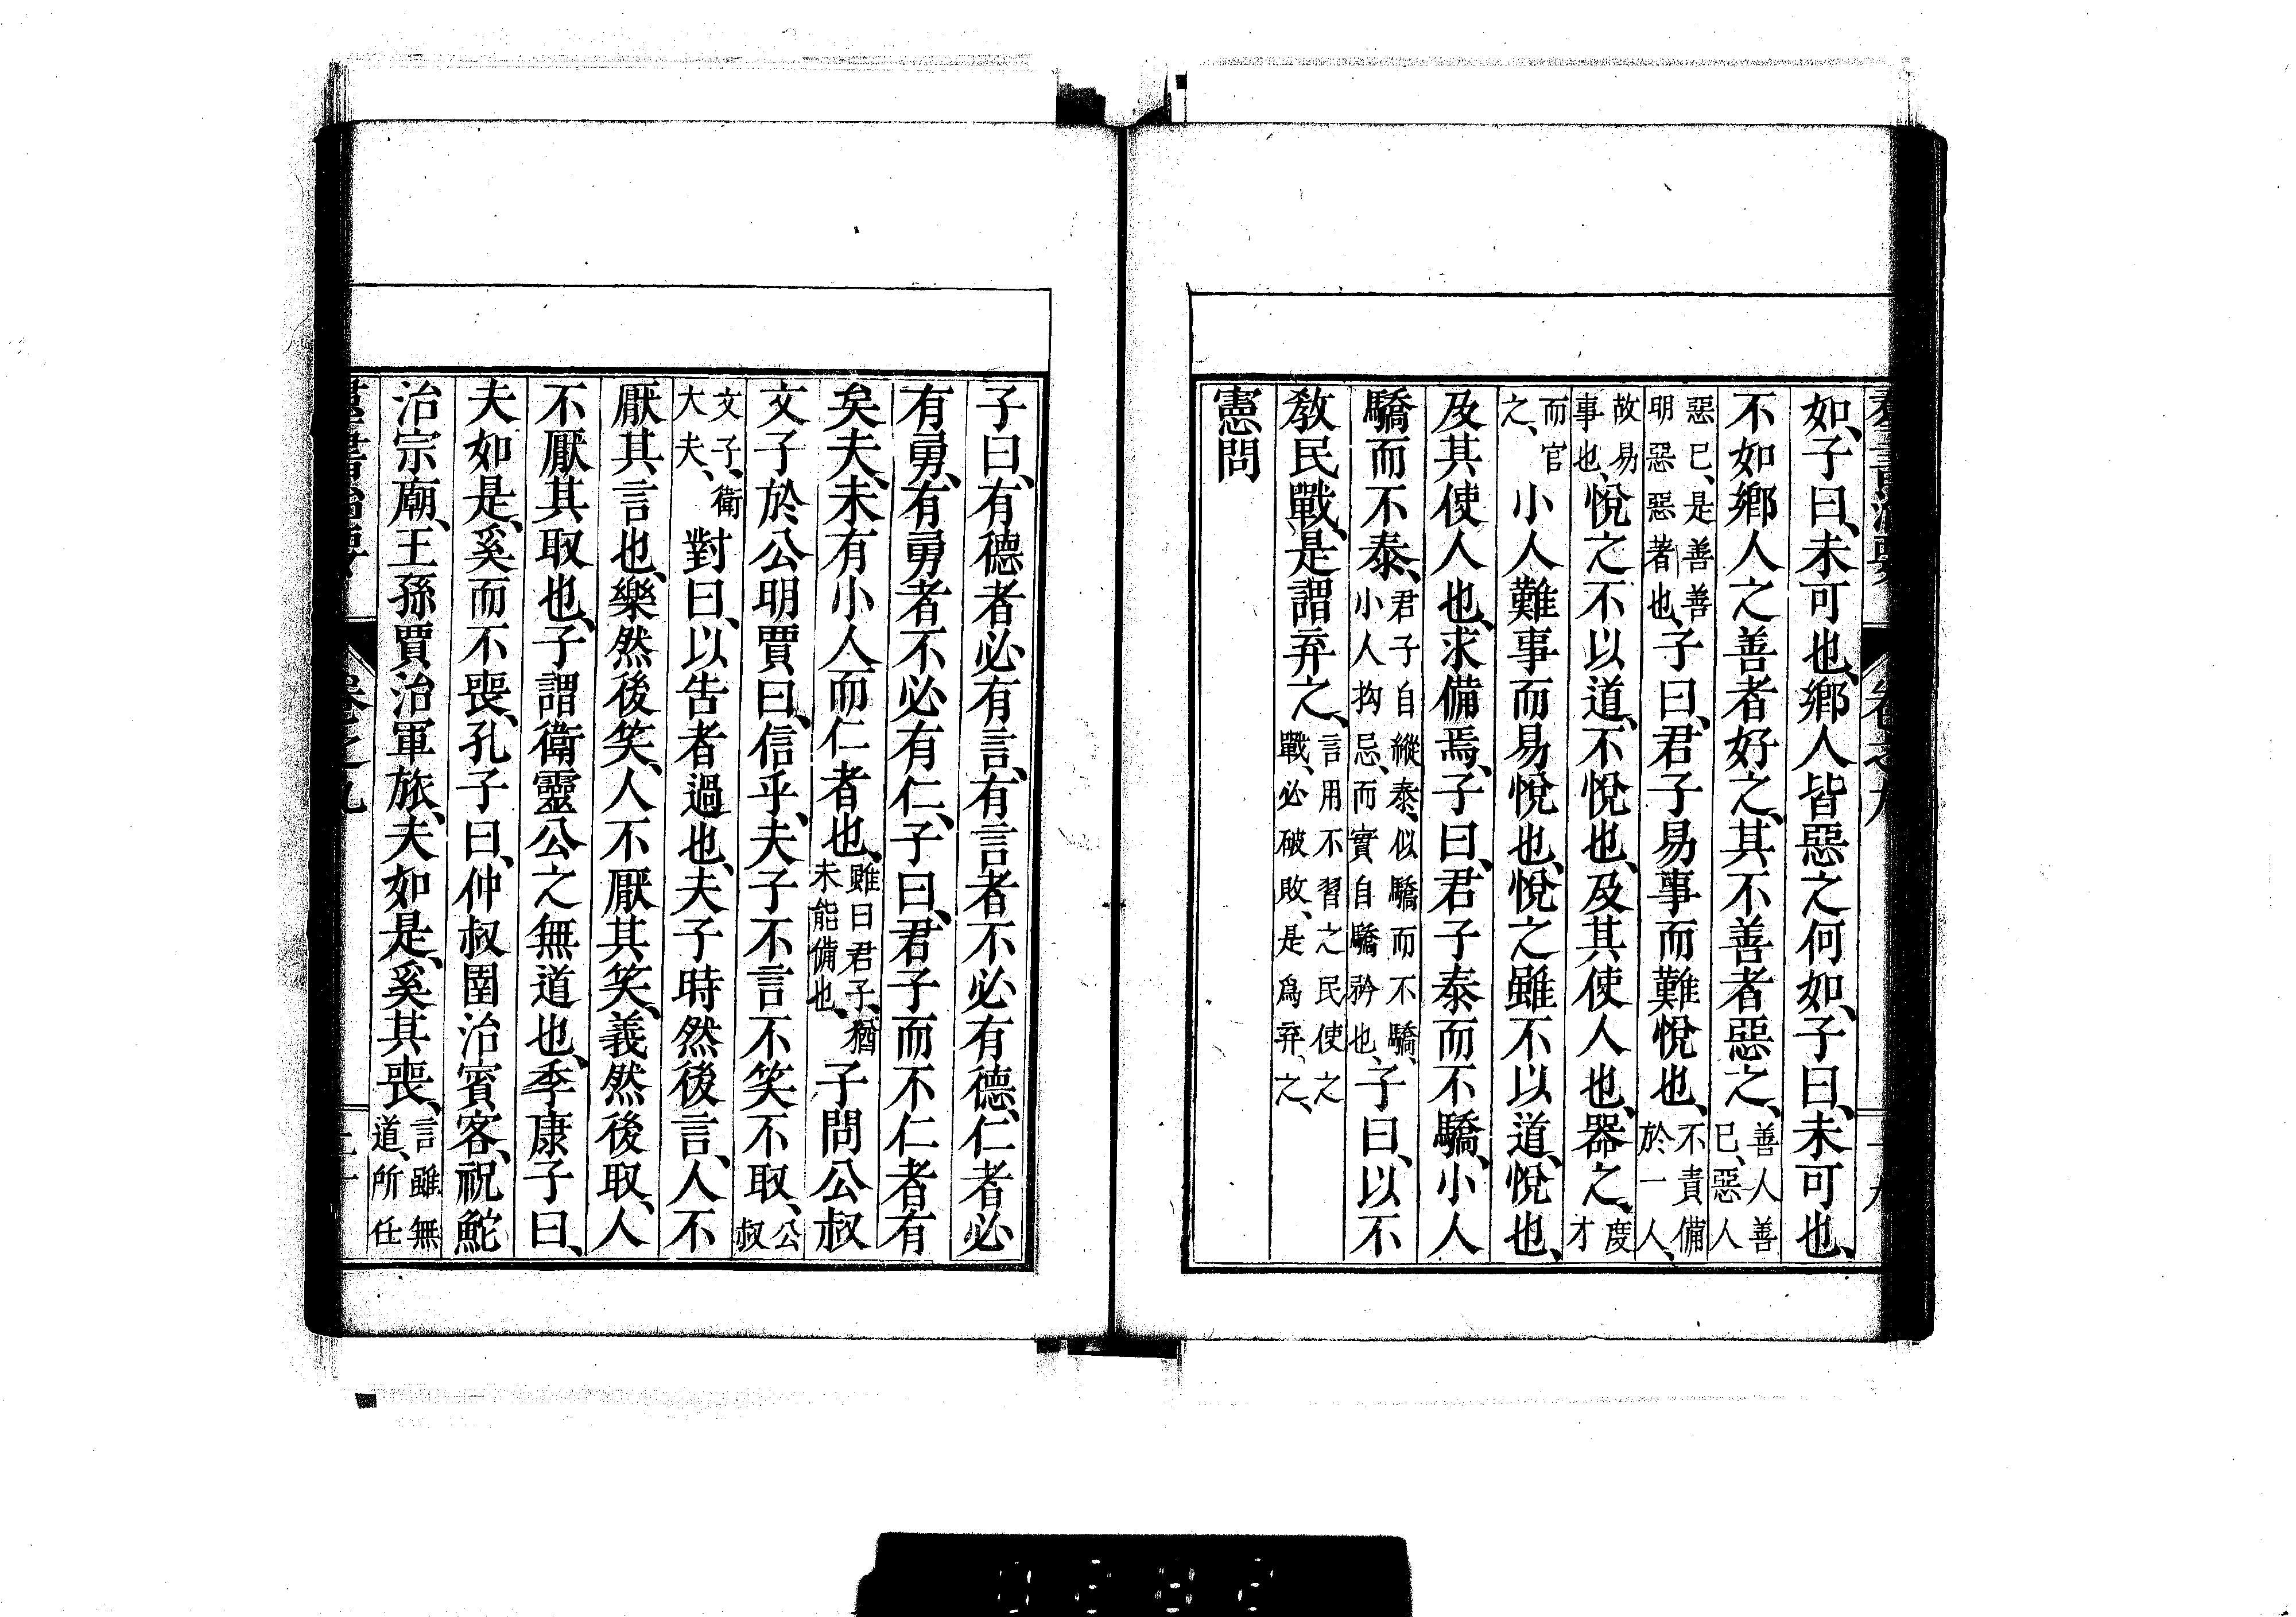 如、子曰、未可也、鄉人皆惡之何如、子曰、未可也、
不如鄉人之善者好之、其不善者惡之、善人善己、惡人
惡己、是善善明惡惡著也、子曰、君子易事而難悅也、不責備於一人、
故易事也、悅之不以道、不悅也、及其使人也、器之、度才
而官之、小人難事而易悅也、悅之雖不以道、悅也、
及其使人也、求備焉、子曰、君子泰而不驕、小人
驕而不泰、君子自縱泰、似驕而不驕、小人拘忌、而實自驕矜也、子曰、以不
教民戰、是謂弃之、言用不習之民使之戰、必破敗、是為弃之、
憲問
子曰、有德者必有言、有言者不必有德、仁者必
有勇、有勇者不必有仁、子曰、君子而不仁者有
矣夫、未有小人而仁者也、雖曰君子、猶未能備也、子問公叔
文子於公明賈曰、信乎、夫子不言不笑不取、公叔
文子、衛大夫、對曰、以告者過也、夫子時然後言、人不
厭其言也、樂然後笑、人不厭其笑、義然後取、人
不厭其取也、子謂衛靈公之無道也、季康子曰、
夫如是、奚而不喪、孔子曰、仲叔圉治賓客、祝鮀
治宗廟、王孫賈治軍旅、夫如是、奚其喪、言雖無道、所任